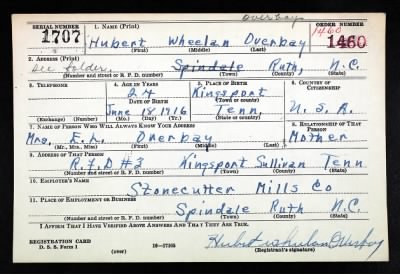 Overbay
SERIAL NUMBER 1. NAME (Print) ORDER NUMBER
1460
1707 Hubert Wheelan Overbay 1460
(First) (Middle) (Last)
2. ADDRESS (Print)
See folder. Spindale Ruth, N.C.
(Number and street or R. F. D. number) (Town) (County) (State)
3. TELEPHONE 4. AGE IN YEARS 5. PLACE OF BIRTH 6. COUNTRY OF CITIZENSHIP
24 Kingsport
DATE OF BIRTH (Town or county)
June 18 1916 Tenn. U.S.A.
(Exchange) (Number) (Mo.) (Day) (Yr.) (State or country)
7. NAME OF PERSON WHO WILL ALWAYS KNOW YOUR ADDRESS 8. RELATIONSHIP OF THAT PERSON
Mrs. E. L. Overbay Mother
(Mr., Mrs., Miss) (First) (Middle) (Last)
9. ADDRESS OF THAT PERSON
R.F.D #3 Kingsport Sullivan Tenn
(Number and street or R. F. D. number) (Town) (County) (State)
10. EMPLOYER'S NAME
Stonecutter Mills Co
11. PLACE OF EMPLOYMENT OR BUSINESS
Spindale Ruth N.C.
(Number and street or R. F. D. number) (Town) (County) (State)
I AFFIRM THAT I HAVE VERIFIED ABOVE ANSWERS AND THAT THEY ARE TRUE.
REGISTRATION CARD
D. S. S. Form 1 (over) 16-17105 Hubert Wheelan Overbay
(Registrant's signature)